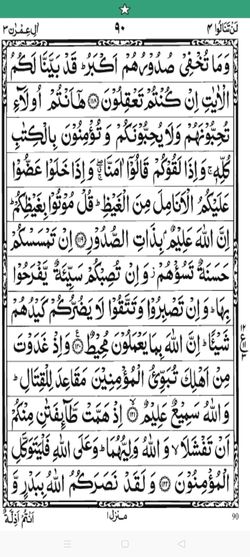 لَنْ تَنَالُوا ۴ ۹۰ اٰلِ عِمْرٰن ۳
وَمَا تُخْفِىْ صُدُوْرُهُمْ اَكْبَرُ ؕ قَدْ بَيَّنَّا لَكُمُ
الْاٰيٰتِ اِنْ كُنْتُمْ تَعْقِلُوْنَ ﴿۱۱۸﴾ هٰۤاَنْتُمْ اُولَآءِ
تُحِبُّوْنَهُمْ وَلَا يُحِبُّوْنَكُمْ وَتُؤْمِنُوْنَ بِالْكِتٰبِ
كُلِّهٖ ۚ وَاِذَا لَقُوْكُمْ قَالُوْۤا اٰمَنَّا ۖۚ وَاِذَا خَلَوْا عَضُّوْا
عَلَيْكُمُ الْاَنَامِلَ مِنَ الْغَيْظِ ؕ قُلْ مُوْتُوْا بِغَيْظِكُمْ ؕ
اِنَّ اللّٰهَ عَلِيْمٌۢ بِذَاتِ الصُّدُوْرِ ﴿۱۱۹﴾ اِنْ تَمْسَسْكُمْ
حَسَنَةٌ تَسُؤْهُمْ ۫ وَاِنْ تُصِبْكُمْ سَيِّئَةٌ يَّفْرَحُوْا
بِهَا ؕ وَاِنْ تَصْبِرُوْا وَتَتَّقُوْا لَا يَضُرُّكُمْ كَيْدُهُمْ
شَيْـًٔا ؕ اِنَّ اللّٰهَ بِمَا يَعْمَلُوْنَ مُحِيْطٌ ﴿۱۲۰﴾ وَاِذْ غَدَوْتَ
مِنْ اَهْلِكَ تُبَوِّئُ الْمُؤْمِنِيْنَ مَقَاعِدَ لِلْقِتَالِ ؕ
وَاللّٰهُ سَمِيْعٌ عَلِيْمٌ ﴿۱۲۱﴾ اِذْ هَمَّتْ طَّآئِفَتٰنِ مِنْكُمْ
اَنْ تَفْشَلَا ۙ وَاللّٰهُ وَلِيُّهُمَا ؕ وَعَلَى اللّٰهِ فَلْيَتَوَكَّلِ
الْمُؤْمِنُوْنَ ﴿۱۲۲﴾ وَلَقَدْ نَصَرَكُمُ اللّٰهُ بِبَدْرٍ وَّ
اَنْتُمْ اَذِلَّةٌ منزل۱ 90